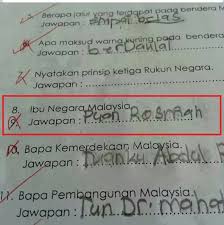 Berapa jalur yang terdapat pada bendera M
Jawapan : empat belas
Apa maksud warna kuning pada bendera
Jawapan : berDaulat
7. Nyatakan prinsip ketiga Rukun Negara.
Jawapan :
8. Ibu Negara Malaysia.
Jawapan : Puan Rosmah
10. Bapa Kemerdekaan Malaysia.
Jawapan : Tunku Abdul R
11. Bapa Pembangunan Malaysia.
Jawapan : Tun Dr. mahat